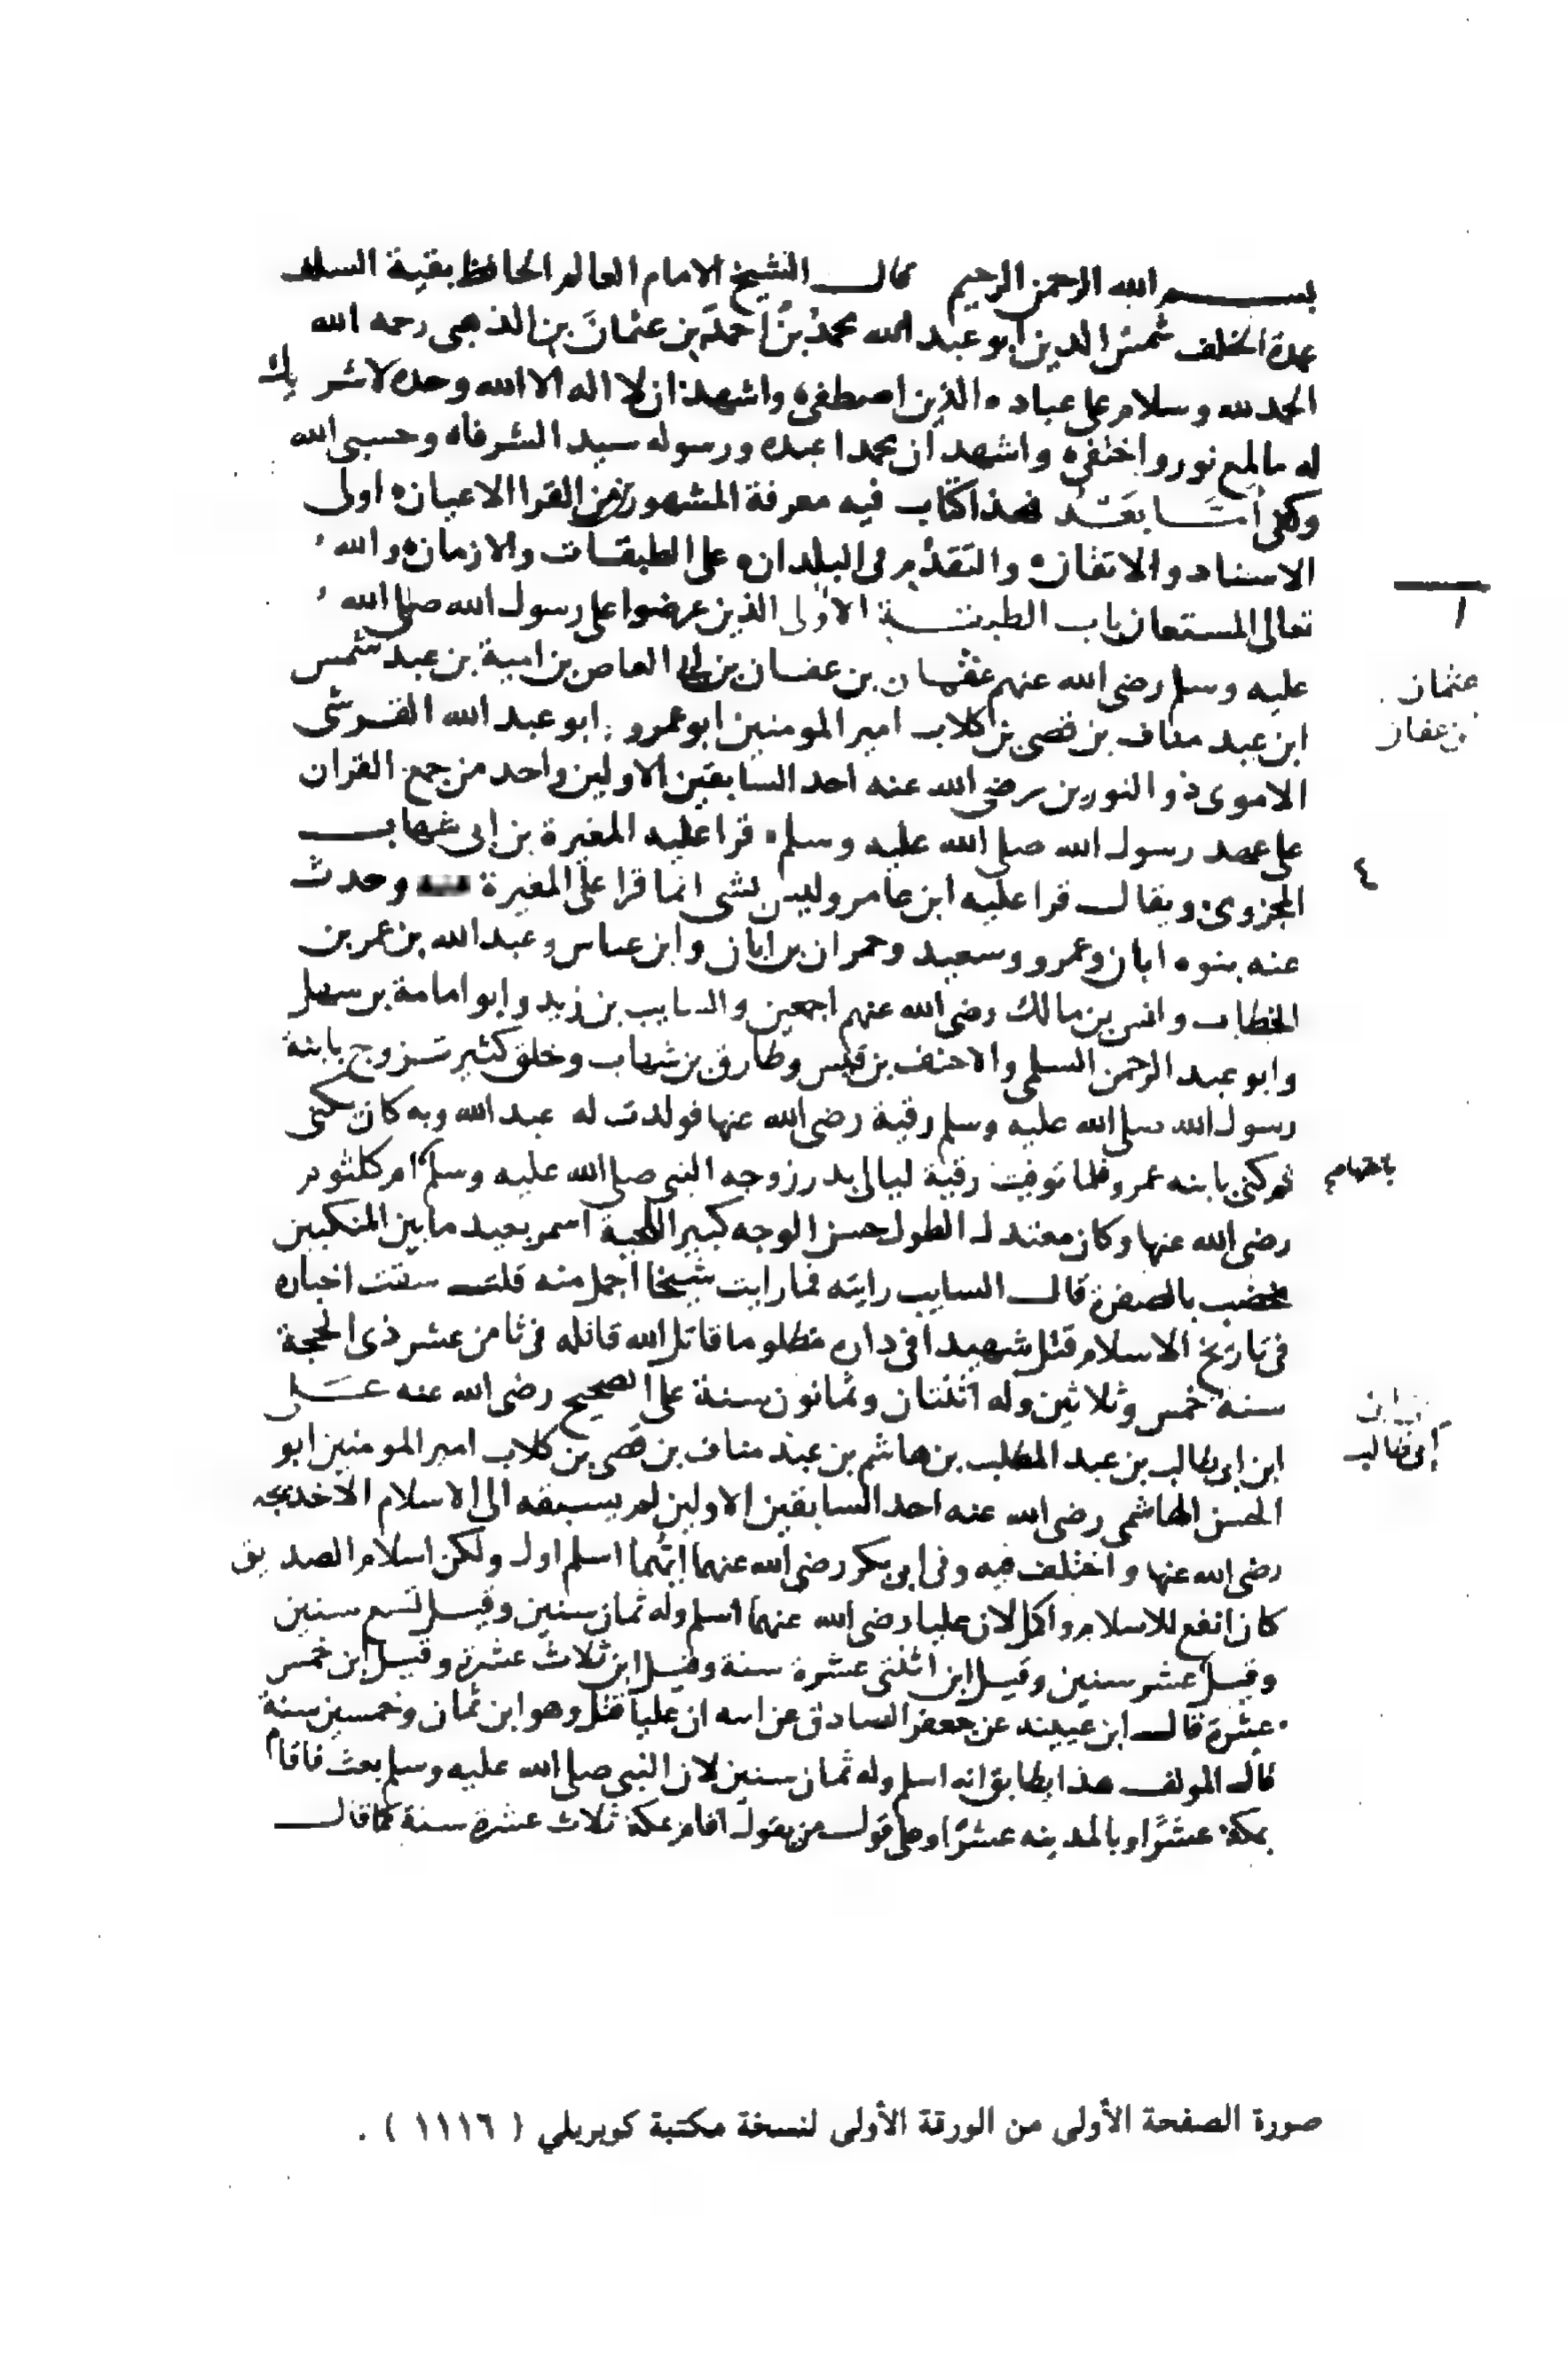 بسم الله الرحمن الرحيم قال الشيخ الامام العالم الحافظ بقية السلف
عمدة الخلف شمس الدين ابو عبد الله محمد بن احمد بن عثمان بن الذهبى رحمه الله
الحمد لله وسلام على عباده الذين اصطفى واشهد ان لا اله الا الله وحده لا شريك
له ما لمع نور واختفى واشهد ان محمدا عبده ورسوله سيد الشرفاء وحسبى الله
وكفى اما بعد فهذا كتاب فيه معرفة المشهورين من القرا الاعيان اولى
الاسناد والاتقان والتقدم فى البلدان على الطبقات والازمان والله
تعالى المستعان باب الطبقة الاولى الذين عرضوا على رسول الله صلى الله
عليه وسلم رضى الله عنهم عثمان بن عفان بن ابى العاص بن امية بن عبد شمس
ابن عبد مناف بن قصى بن كلاب امير المومنين ابو عمرو ابو عبد الله القرشى
الاموى ذو النورين رضى الله عنه احد السابقين الاولين واحد من جمع القران
على عهد رسول الله صلى الله عليه وسلم قرا عليه المغيرة بن ابى شهاب
المخزومى ويقال قرا عليه ابن عامر وليس بشى انما قرا على المغيرة وحدث
عنه بنوه ابان وعمرو وسعيد وحمران بن ابان وابن عباس وعبد الله بن عمر بن
الخطاب وانس بن مالك رضى الله عنهم اجمعين والسايب بن زيد وابو امامة بن سهل
وابو عبد الرحمن السلمى والاحنف بن قيس وطارق بن شهاب وخلق كثير تزوج بابنة
رسول الله صلى الله عليه وسلم رقية رضى الله عنها فولدت له عبد الله وبه كان يكنى
ثم كنى بابنه عمرو فلما توفيت رقية ليالى بدر زوجه النبى صلى الله عليه وسلم ام كلثوم
رضى الله عنها وكان معتدل الطول حسن الوجه كبير اللحية اسمر بعيد ما بين المنكبين
يخضب بالصفرة قال السايب رايته فما رايت شيخا اجمل منه قلت سقت اخباره
فى تاريخ الاسلام قتل شهيدا فى داره مظلوما قاتل الله قاتله فى ثامن عشر ذى الحجة
سنة خمس وثلاثين وله اثنتان وثمانون سنة على الصحيح رضى الله عنه على
ابن ابى طالب بن عبد المطلب بن هاشم بن عبد مناف بن قصى بن كلاب امير المومنين ابو
الحسن الهاشمى رضى الله عنه احد السابقين الاولين لم يسبقه الى الاسلام الا خديجه
رضى الله عنها واختلف فيه وفى ابى بكر رضى الله عنهما ايهما اسلم اول ولكن اسلام الصديق
كان انفع للاسلام واكمل لان عليا رضى الله عنهما اسلم وله ثمان سنين وقيل تسع سنين
وقيل عشر سنين وقيل ابن اثنتى عشرة سنة وقيل ابن ثلاث عشرة وقيل ابن خمس
عشرة قال ابن عيينه عن جعفر الصادق عن ابيه ان عليا قتل وهو ابن ثمان وخمسين سنة
قال المولف هذا يطابق انه اسلم وله ثمان سنين لان النبى صلى الله عليه وسلم بعث فاقام
بمكة عشرا وبالمدينه عشرا وعلى قول من يقول اقام بمكة ثلاث عشرة سنة كما قال
١
عثمان
بن عفان
٤
أبى طالب
صورة الصفحة الأولى من الورقة الأولى لنسخة مكتبة كوبريلي ( ١١١٦ ) .